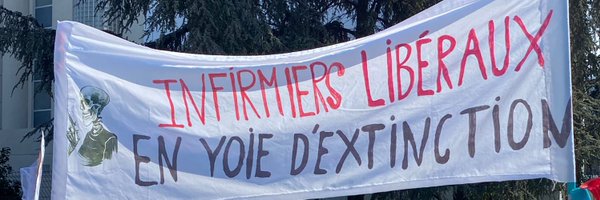 INFIRMIERS LIBÉRAUX
EN VOIE D'EXTINCTION